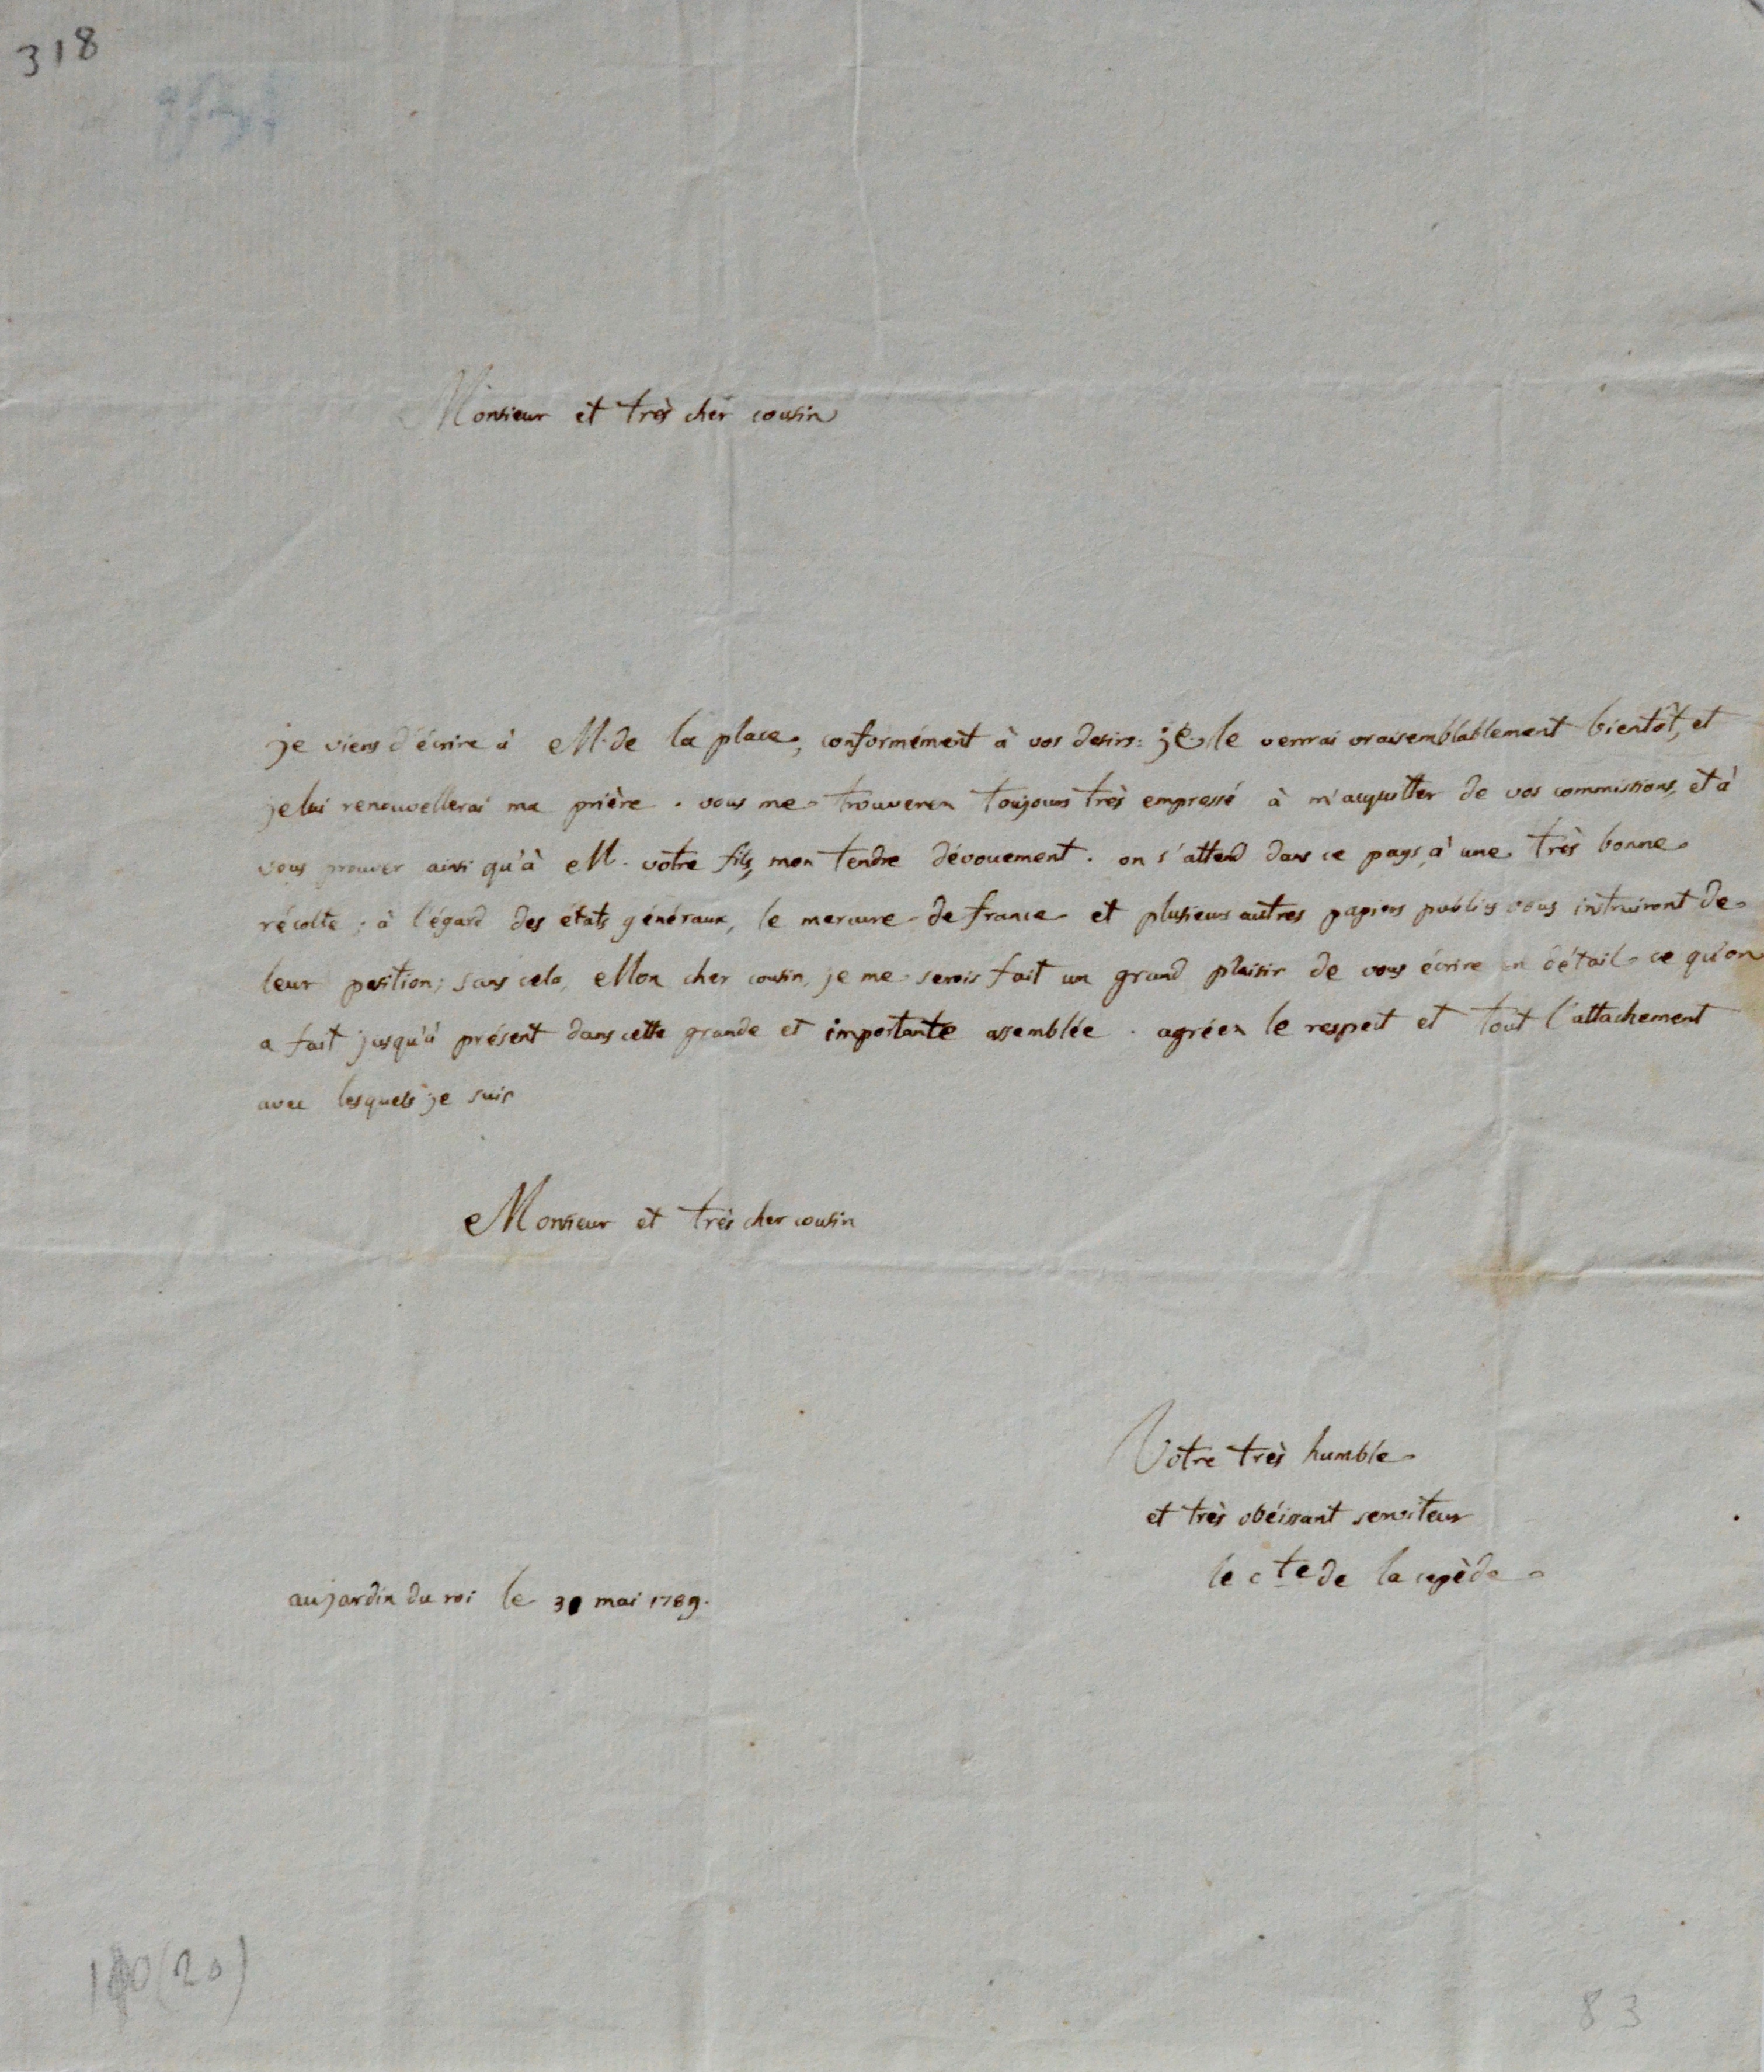 318
Monsieur et très cher cousin
je viens d'écrire à M. de la place, conformément à vos desirs: je le verrai vraisemblablement bientôt, et
je lui renouvellerai ma prière. vous me trouverez toujours très empressé à m'acquitter de vos commissions, et à
vous prouver ainsi qu'à M. votre fils, mon tendre dévouement. on s'attend dans ce pays, à une très bonne
récolte; à l'égard des états généraux, le mercure de france et plusieurs autres papiers publics vous instruiront de
leur position; sans cela, Mon cher cousin, je me serois fait un grand plaisir de vous écrire en détail ce qu'on
a fait jusqu'à présent dans cette grande et importante assemblée. agréez le respect et tout l'attachement
avec lesquels je suis
Monsieur et très cher cousin
Votre très humble
et très obéissant serviteur
le cte de la cepède
au jardin du roi le 30 mai 1789.
(20)
83